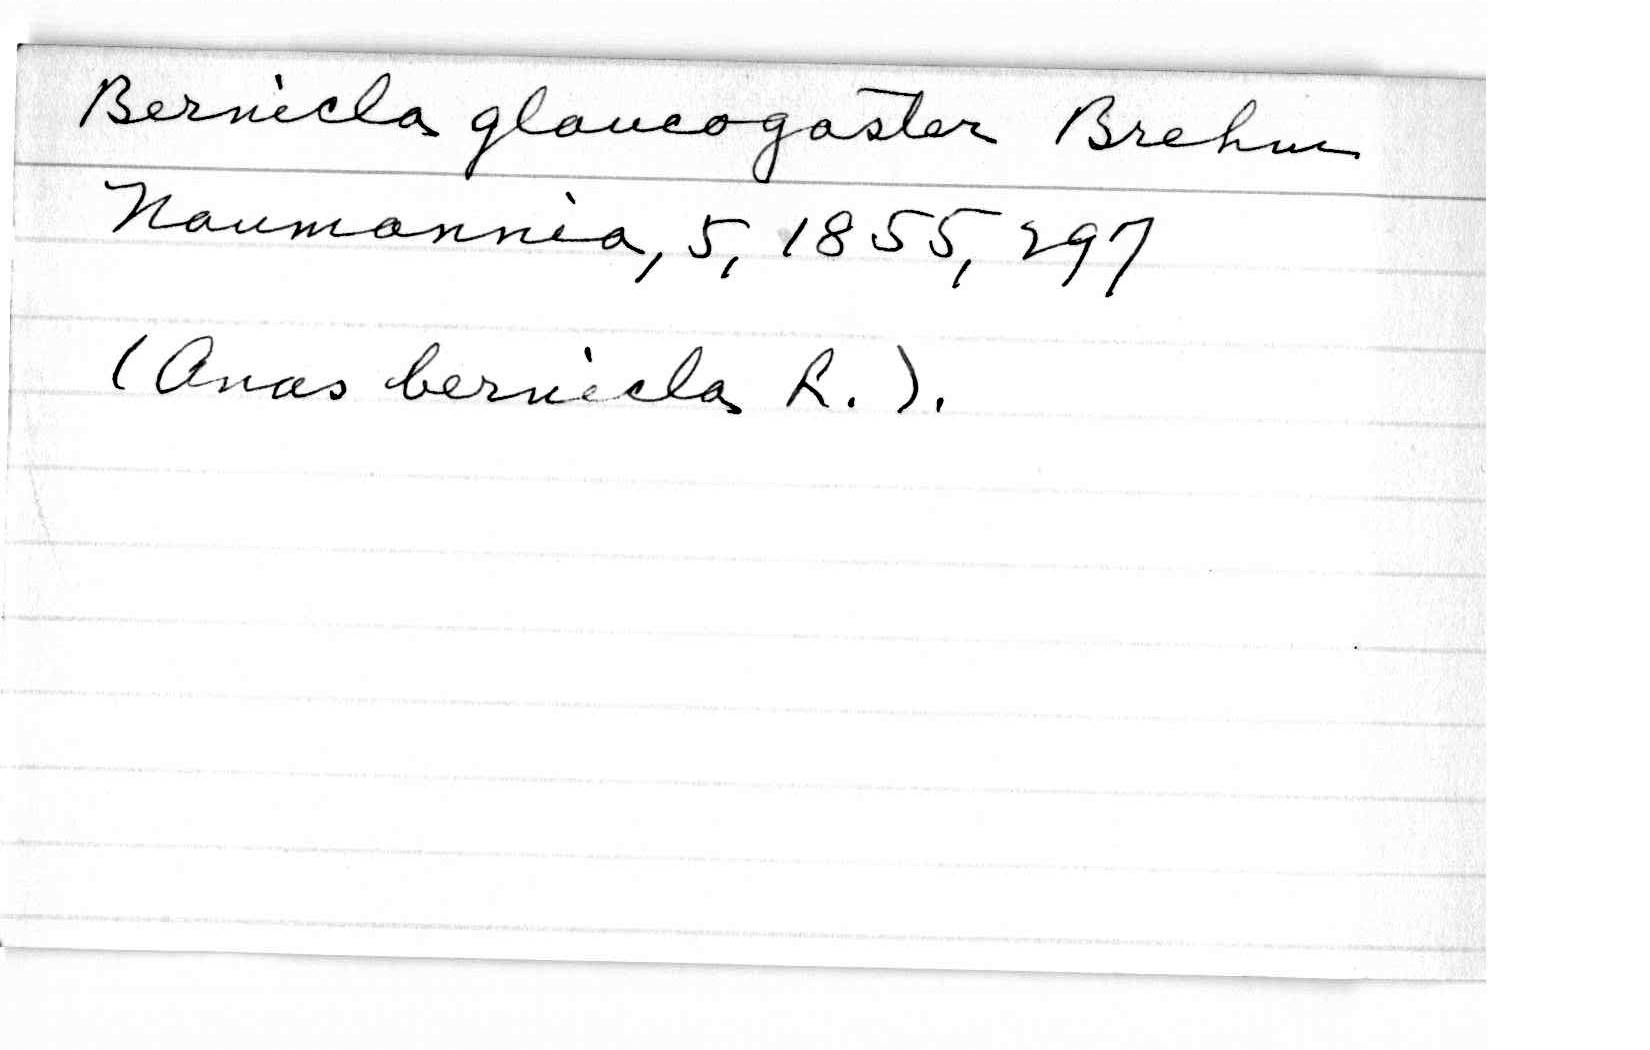 Bernicla glaucogaster Brehm
Naumannia, 5, 1855, 297
(Anas bernicla L.).